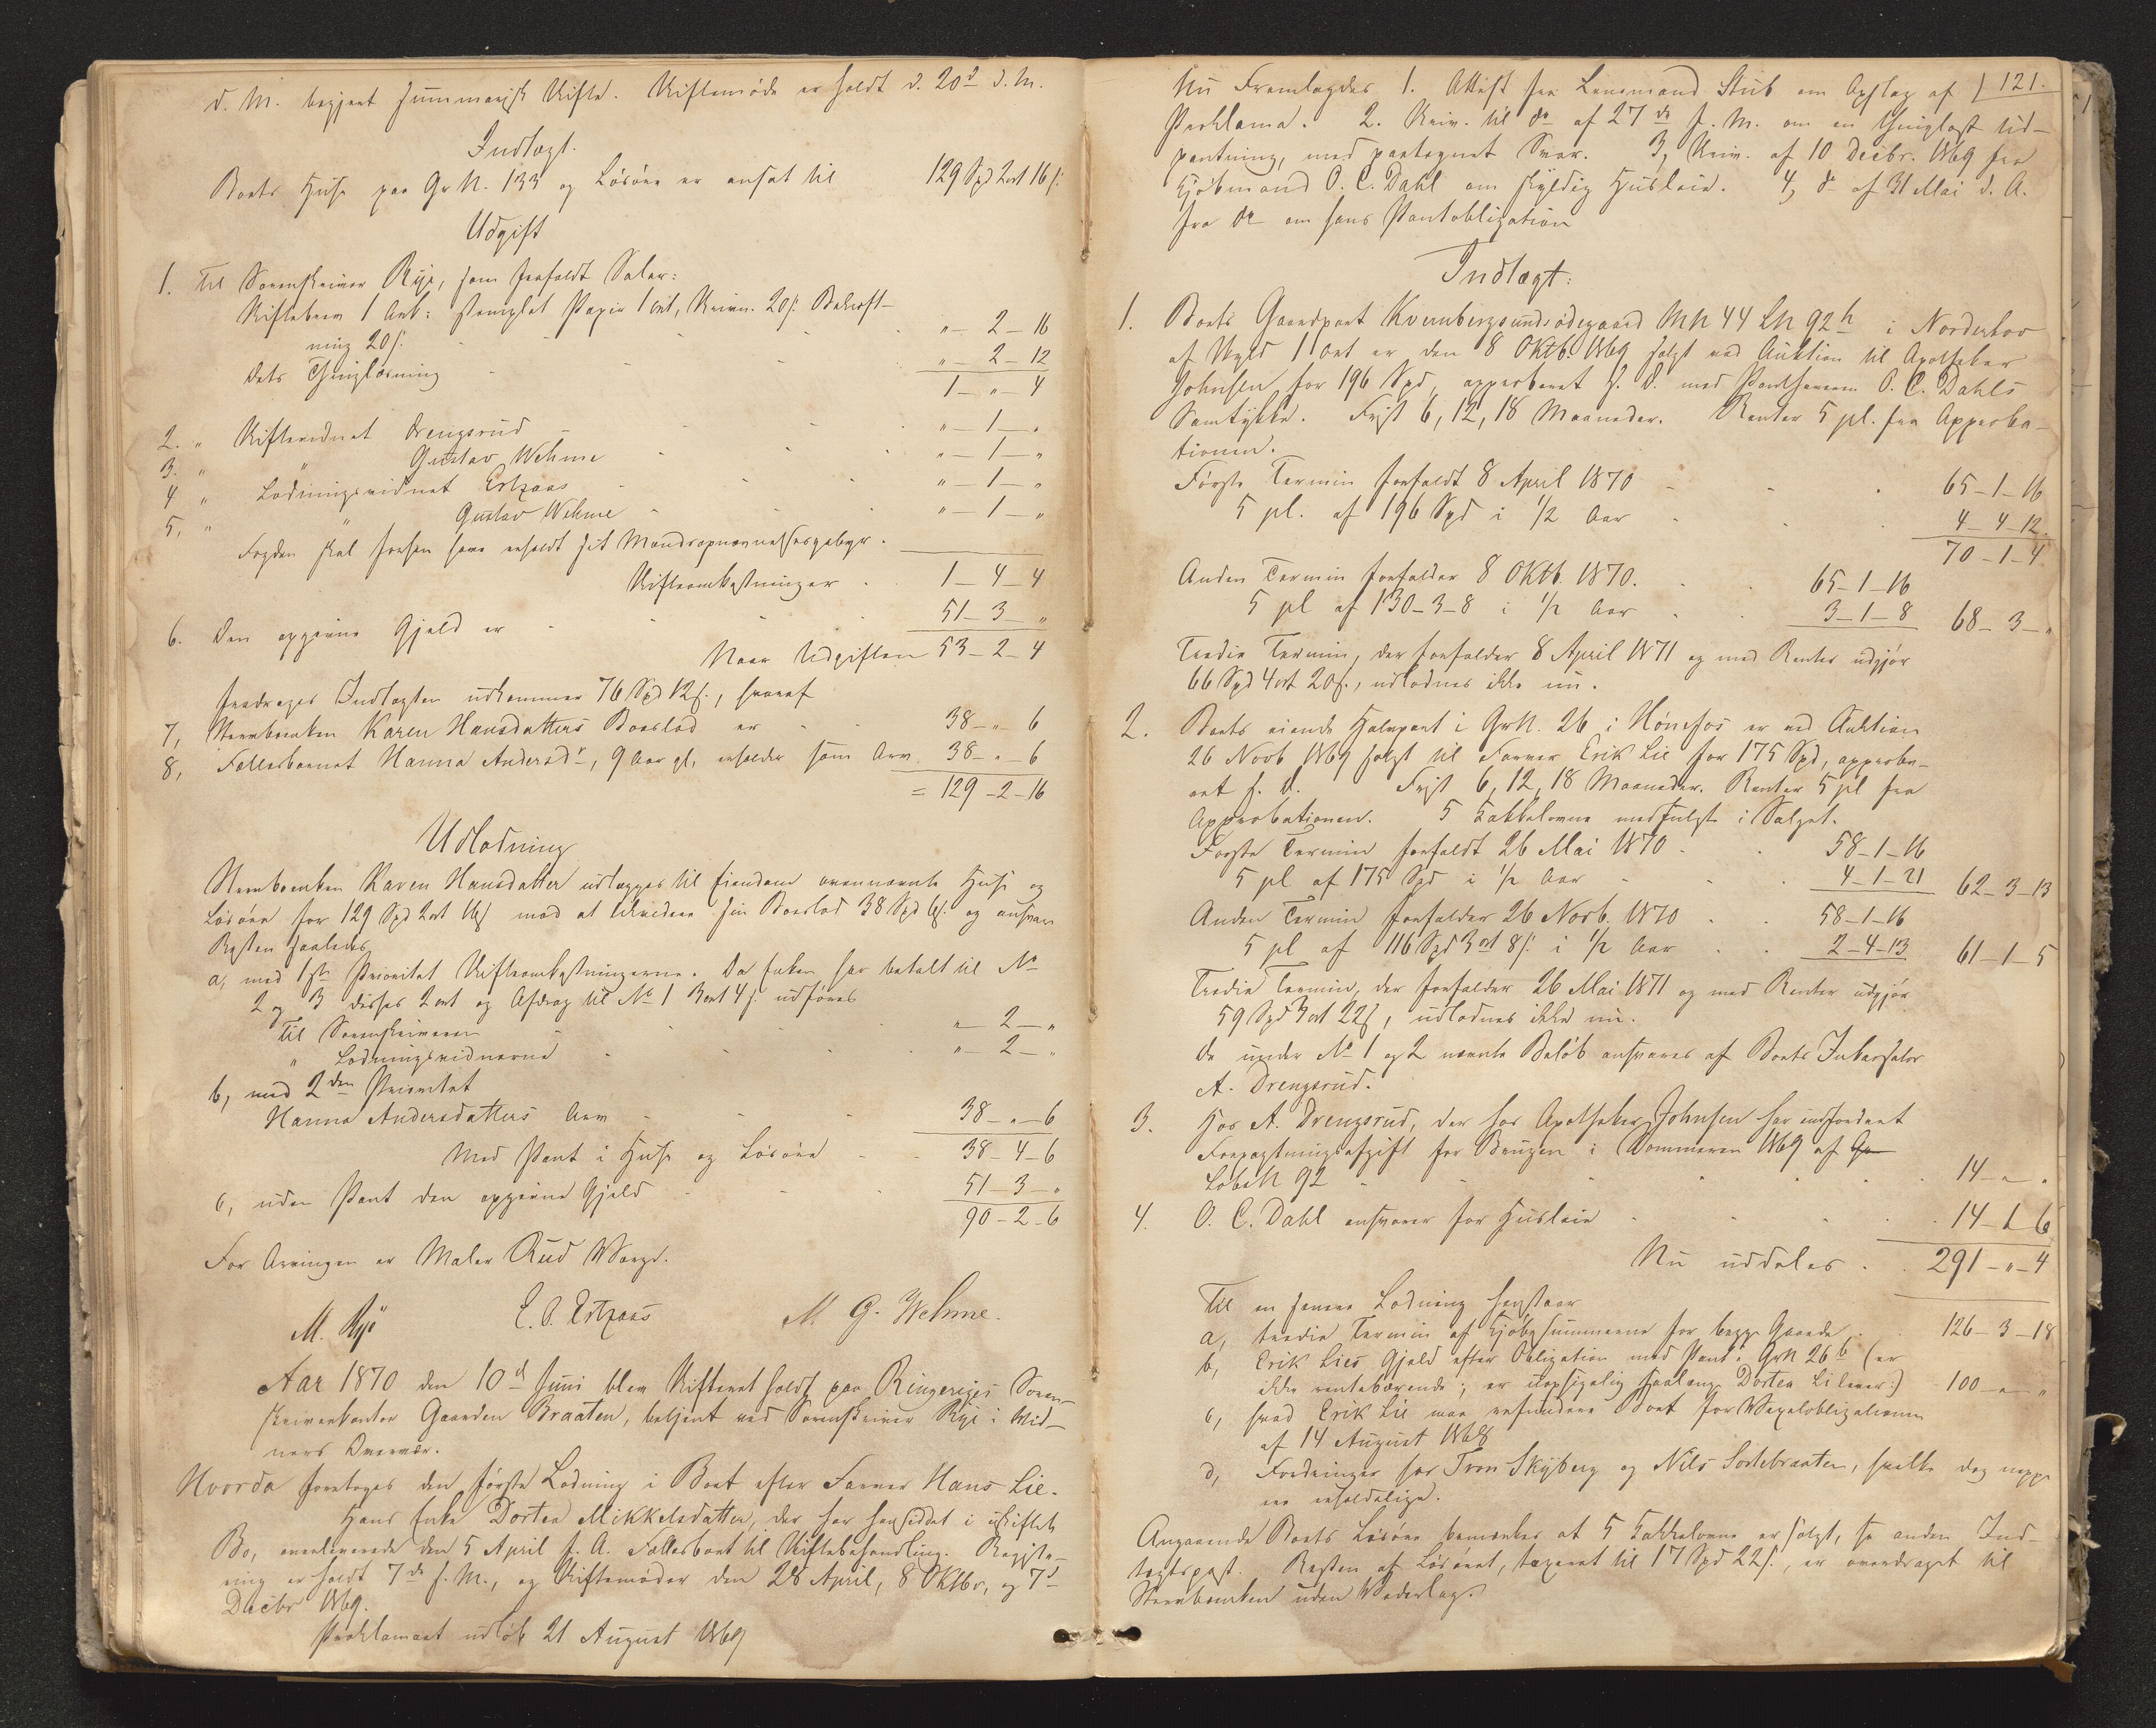 d. M. begjert summarisk Skifte. Skiftemøde er holdt d. 20d d. M.
Indtægt.
Boets Huse paa Gr N. 133 og Løsøre er ansat til 129 Spd 2 ort 16 s:
Udgift
1. Til Sorenskriver Rye, som forfaldt Salær:
Skiftebrev 1 Ark: stemplet Papir 1 ort, Skrivn. 20 s: Bekræft-
ning 20 s. „ - 2 - 16
Dets Thinglæsning „ - 2 - 12
1 - „ - 4
2. „ Skiftevidnet Drengsrud „ - 1 - „
3. „ „ Gustav Wehme „ - 1 - „
4 „ Lodningsvidnet Ertzaas „ - 1 - „
5, „ „ Gustav Wehme „ - 1 - „
Fogden skal forhen have erholdt sit Mandsopnævnelsesgebyr.
Skifteomkostninger 1 - 4 - 4
6. Den opgivne Gjeld er 51 - 3 - „
Naar Udgiften 53 - 2 - 4
fradrages Indtægten udkommer 76 Spd 12 s., hvoraf
7, Stervboenken Karen Hansdatters Boeslod er 38 - „ - 6
8, Fællesbarnet Hanna Andersdr, 9 Aar gl, erholder som Arv 38 - „ - 6
= 129 - 2 - 16
Udlodning
Stervboenken Karen Hansdatter udlægges til Eiendom ovennævnte Huse og
Løsøre for 129 Spd 2 ort 16 s mod at likvidere sin Boeslod 38 Spd 6 s. og ansvare
Resten saaledes
a, med 1ste Prioritet Skifteomkostningerne. Da Enken har betalt til No
2 og 3 disses 2 ort og Afdrag til No 1 3 ort 4 s: udføres
Til Sorenskriveren „ - 2 - „
„ Lodningsvidnerne „ - 2 - „
b, med 2den Prioritet
Hanna Andersdatters Arv 38 - „ - 6
Med Pant i Huse og Løsøre 38 - 4 - 6
c, uden Pant den opgivne Gjeld 51 - 3 - „
90 - 2 - 6
For Arvingen er Maler Rud Værge.
M. Rye E. O. Ertzaas M. G. Wehme.
Aar 1870 den 10d Juni blev Skifteret holdt paa Ringeriges Soren-
skriverkontor Gaarden Braaten, betjent ved Sorenskriver Rye i Vid-
ners Overvær.
Hvorda foretoges den første Lodning i Boet efter Farver Hans Lie.
Hans Enke Dortea Mikkelsdatter, der har hensiddet i uskiftet
Bo, overleverede den 5 April f. A. Fællesboet til Skiftebehandling. Registe-
ring er holdt 7de s. M., og Skiftemøder den 28 April, 8 Oktbr, og 7d
Decbr 1869.
Proklamaet udløb 21 August 1869
121.
Nu Fremlagdes 1. Attest fra Lensmand Stub om Opslag af
Proklama. 2. Skriv. til do af 27de f. M. om en thinglæst Ud-
pantning, med paategnet Svar. 3, Skriv. af 10 Decbr. 1869 fra
Kjøbmand O. C. Dahl om skyldig Husleie. 4, do af 31 Mai d. A.
fra do om hans Pantobligation
Indtægt:
1. Boets Gaardpart Kvernbergsundsødegaard MN 44 LN 92h i Norderhov
af Skyld 1 Ort er den 8 Oktb. 1869 solgt ved Auktion til Apotheker
Johnsen for 196 Spd, approberet s. D. med Panthaveren O. C. Dahls
Samtykke. Frist 6, 12, 18 Maaneder. Renter 5 pC. fra Approba-
tionen.
Første Termin forfaldt 8 April 1870 65 - 1 - 16
5 pC. af 196 Spd i 1/2 Aar 4 - 4 - 12.
70 - 1 - 4.
Anden Termin forfalder 8 Oktb. 1870. 65 - 1 - 16
5 pC af 130 - 3 - 8 i 1/2 Aar 3 - 1 - 8 68 - 3 - „
Tredie Termin, der forfalder 8 April 1871 og med Renter udgjør
66 Spd 4 ort 20 s., udlodnes ikke nu.
2. Boets eiende Halvpart i GrN. 26 i Hønefos er ved Auktion
26 Novb 1869 solgt til Farver Erik Lie for 175 Spd, approbe-
ret s. D. Frist 6, 12, 18 Maaneder. Renter 5 pC fra
Approbationen. 5 Kakkelovne medfulgte i Salget.
Første Termin forfaldt 26 Mai 1870 58 - 1 - 16
5 pC af 175 Spd i 1/2 Aar 4 - 1 - 21 62 - 3 - 13
Anden Termin forfalder 26 Novb. 1870 58 - 1 - 16
5 pC af 116 Spd 3 ort 8 s: i 1/2 Aar 2 - 4 - 13 61 - 1 - 5
Tredie Termin, der forfalder 26 Mai 1871 og med Renter udgjør
59 Spd 3 ort 22 s, udlodnes ikke nu.
De under No 1 og 2 nævnte Beløb ansvares af Boets Inkassator
A. Drengsrud.
3. Hos A. Drengsrud, der hos Apotheker Johnsen har indfordret
Forpagtningsafgift for Brugen i Sommeren 1869 af
Løbe N 92 14 - „ - „
4. O. C. Dahl ansvarer for Husleie 14 - 1 - 6
Nu uddeles 291 - „ - 4
Til en senere Lodning henstaar
a, tredie Termin af Kjøbesummerne for begge Gaarde 126 - 3 - 18
b, Erik Lies Gjeld efter Obligation med Pant i GrN 26b (er
ikke rentebærende; er uopsigelig saalænge Dortea Li lever.) 100 - „ - „
c, hvad Erik Lie maa refundere Boet for Vexelobligationen
af 14 August 1868
d, Fordringer hos Tron Skyberg og Nils Sortebraaten, hvilke dog neppe
ere erholdelige.
Angaaende Boets Løsøre bemærkes at 5 Kakkelovne er solgt, se anden Ind-
tægtspost. Resten af Løsøret, taxeret til 17 Spd 22 s., er overdraget til
Stervboenken uden Vederlag.